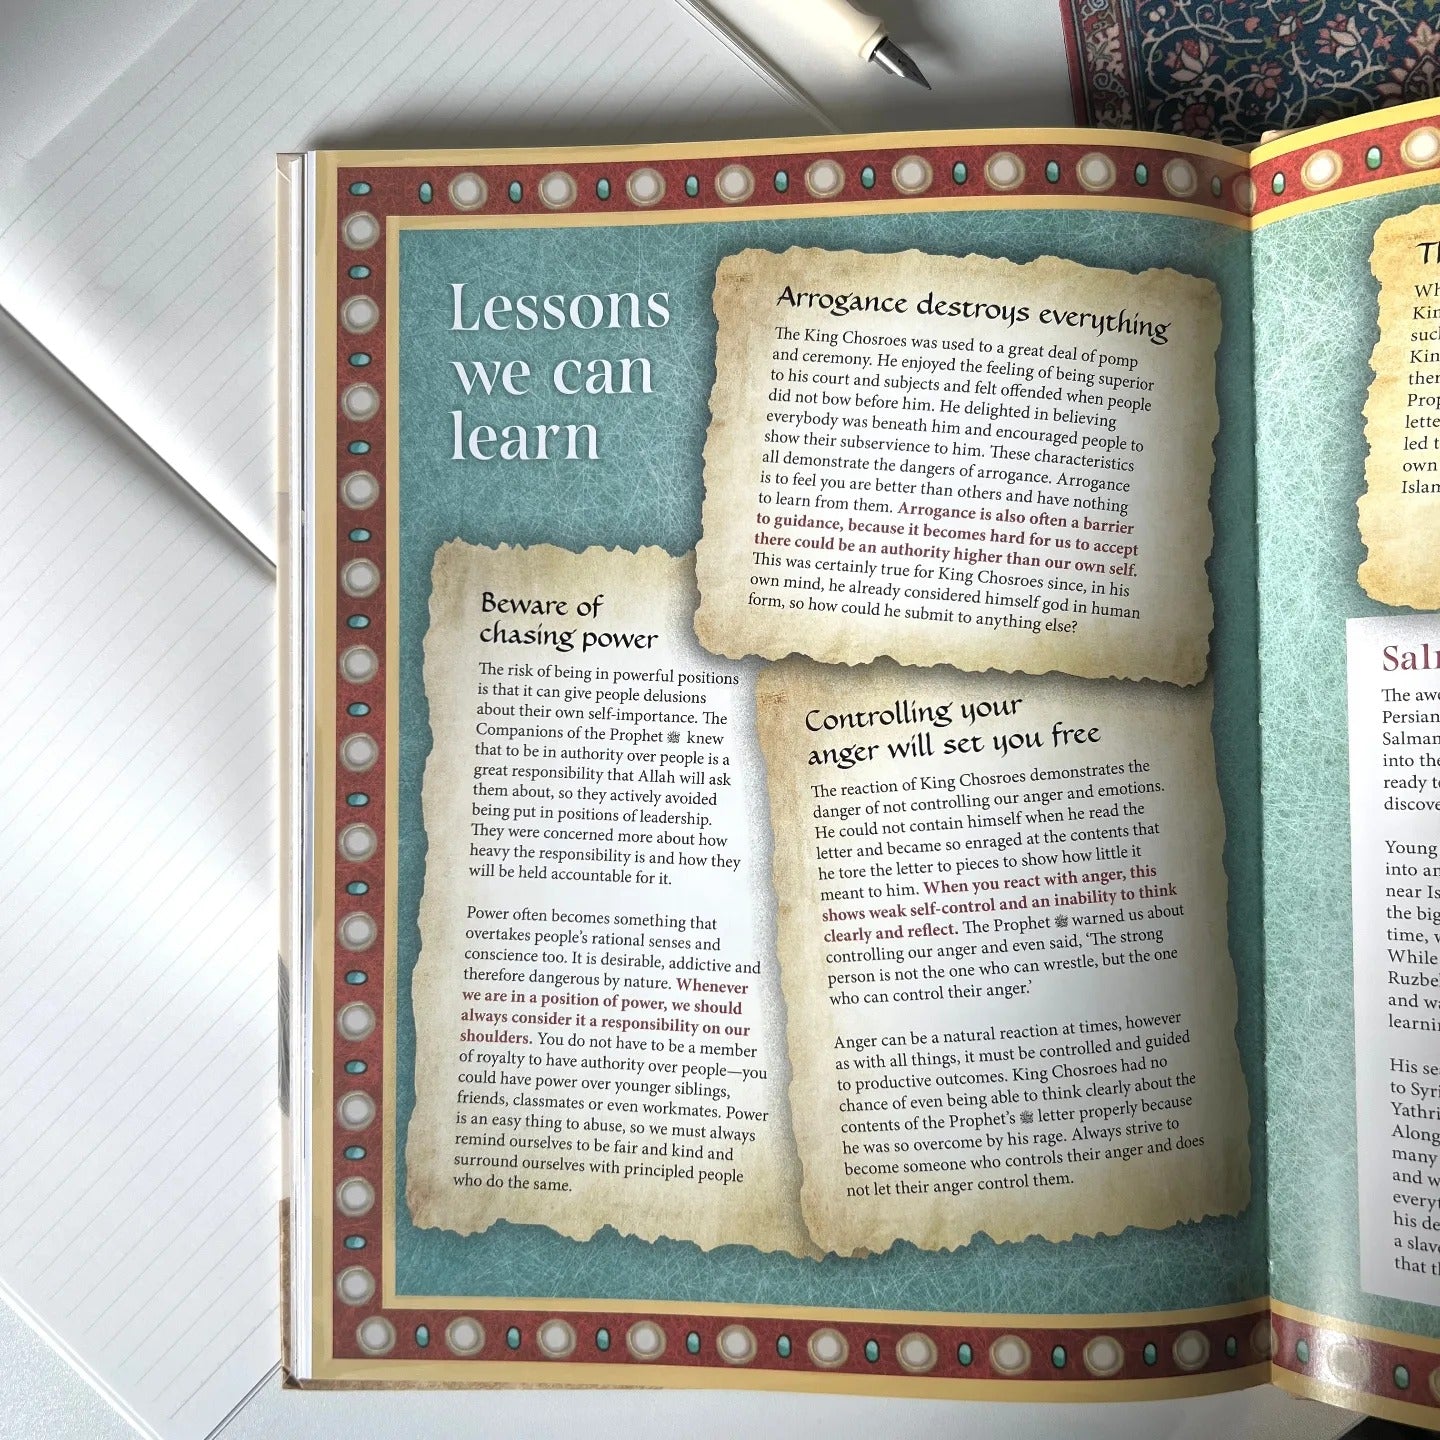 Lessons
we can
learn
Arrogance destroys everything
The King Chosroes was used to a great deal of pomp
and ceremony. He enjoyed the feeling of being superior
to his court and subjects and felt offended when people
did not bow before him. He delighted in believing
everybody was beneath him and encouraged people to
show their subservience to him. These characteristics
all demonstrate the dangers of arrogance. Arrogance
is to feel you are better than others and have nothing
to learn from them. Arrogance is also often a barrier
to guidance, because it becomes hard for us to accept
there could be an authority higher than our own self.
This was certainly true for King Chosroes since, in his
own mind, he already considered himself god in human
form, so how could he submit to anything else?
Beware of
chasing power
The risk of being in powerful positions
is that it can give people delusions
about their own self-importance. The
Companions of the Prophet ﷺ knew
that to be in authority over people is a
great responsibility that Allah will ask
them about, so they actively avoided
being put in positions of leadership.
They were concerned more about how
heavy the responsibility is and how they
will be held accountable for it.
Power often becomes something that
overtakes people's rational senses and
conscience too. It is desirable, addictive and
therefore dangerous by nature. Whenever
we are in a position of power, we should
always consider it a responsibility on our
shoulders. You do not have to be a member
of royalty to have authority over people—you
could have power over younger siblings,
friends, classmates or even workmates. Power
is an easy thing to abuse, so we must always
remind ourselves to be fair and kind and
surround ourselves with principled people
who do the same.
Controlling your
anger will set you free
The reaction of King Chosroes demonstrates the
danger of not controlling our anger and emotions.
He could not contain himself when he read the
letter and became so enraged at the contents that
he tore the letter to pieces to show how little it
meant to him. When you react with anger, this
shows weak self-control and an inability to think
clearly and reflect. The Prophet ﷺ warned us about
controlling our anger and even said, 'The strong
person is not the one who can wrestle, but the one
who can control their anger.'
Anger can be a natural reaction at times, however
as with all things, it must be controlled and guided
to productive outcomes. King Chosroes had no
chance of even being able to think clearly about the
contents of the Prophet's ﷺ letter properly because
he was so overcome by his rage. Always strive to
become someone who controls their anger and does
not let their anger control them.
The
Persian
Salman
into the
ready to
Young
into an
near
the big
time,
While
and
His
to
Along
many
and
his
a
that